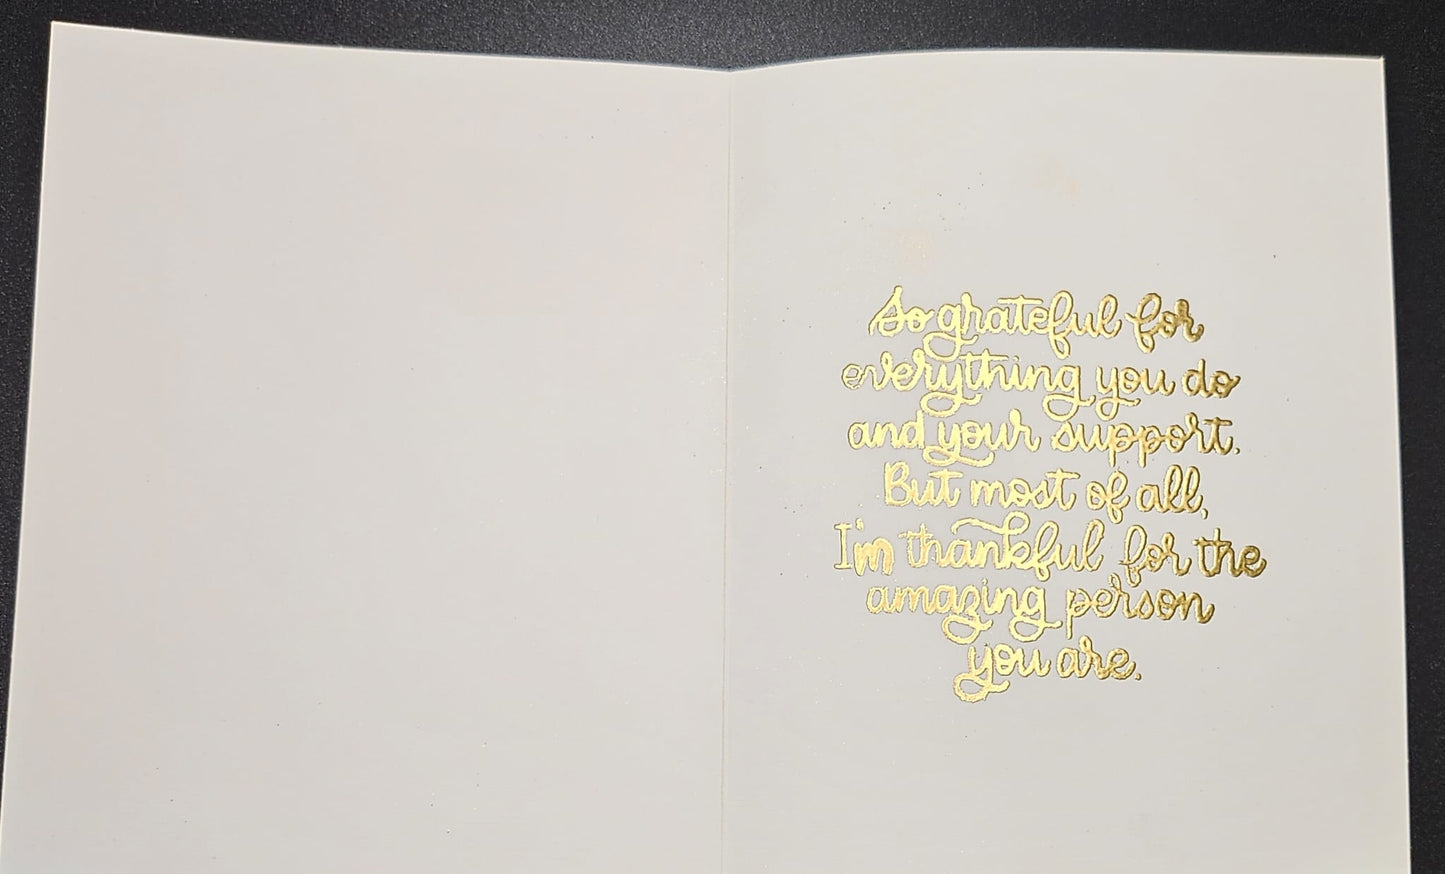 So grateful for
everything you do
and your support.
But most of all,
I'm thankful for the
amazing person
you are.